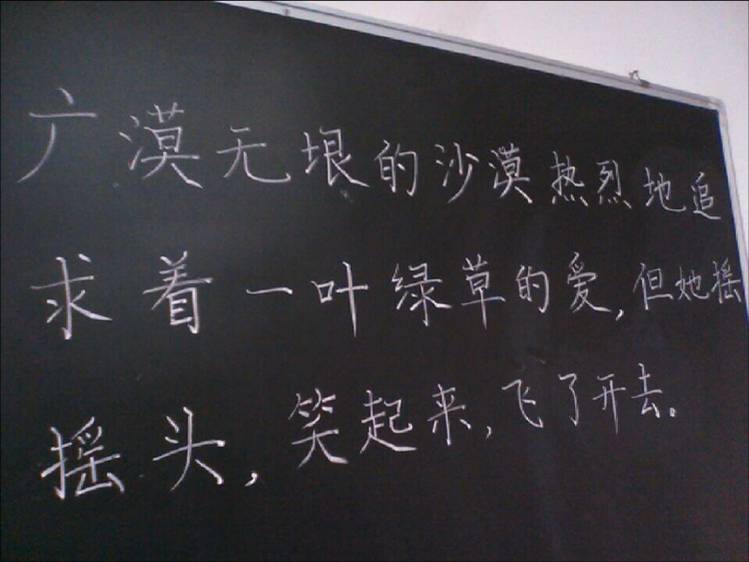 广漠无垠的沙漠热烈地追
求着一叶绿草的爱,但她摇
摇头,笑起来,飞了开去。